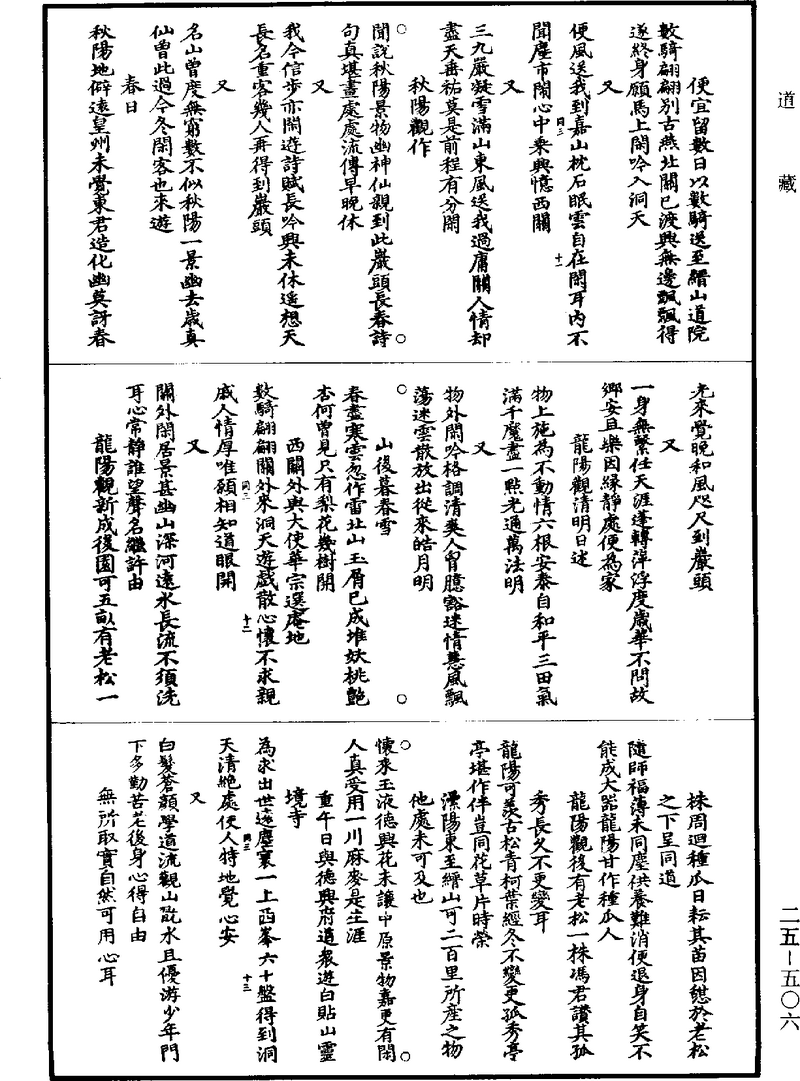 道藏
便宜留數日以數騎送至縉山道院
數騎翩翩別古燕北關已渡興無邊飄飄得
遂終身願馬上閑吟入洞天
又
便風送我到嘉山枕石眠雲自在閑耳內不
聞塵市鬧心中乘興憶西關
又
三九嚴凝雪滿山東風送我過庸關人情却
盡天垂祐莫是前程有分閑
秋陽觀作
聞說秋陽景物幽神仙親到此巖頭長春詩
句真堪畫處處流傳早晚休
又
我今信步亦閑遊詩賦長吟興未休遥想天
長名重客幾人再得到巖頭
又
名山曾度無窮數不似秋陽一景幽去歲真
仙曾此過今冬閑客也來遊
春日
秋陽地僻遠皇州未覺東君造化幽莫訝春
光來覺晚和風咫尺到巖頭
又
一身無繫任天涯蓬轉萍浮度歲華不問故
鄉安且樂因緣靜處便為家
龍陽觀清明日述
物上施為不動情六根安泰自和平三田氣
滿千魔盡一點光通萬法明
又
物外閑吟格調清爽人胷臆豁迷情蕙風飄
蕩迷雲散放出從來皓月明
山後暮春雪
春盡寒雲忽作雷北山玉屑已成堆妖桃艶
杏何曾見只有梨花幾樹開
西關外與大使華宗選庵地
數騎翩翩關外來洞天遊戲散心懷不求親
戚人情厚唯願相知道眼開
又
關外閑居景甚幽山深河遠水長流不須洗
耳心常靜誰望聲名繼許由
龍陽觀新成後園可五畝有老松一
株周迴種瓜日耘其苗因憩於老松
之下呈同道
隨師福薄未同塵供養難消便退身自笑不
能成大器龍陽甘作種瓜人
龍陽觀後有老松一株馮君讚其孤
秀長久不更變耳
龍陽可羡古松青柯葉經冬不變更孤秀亭
亭堪作伴豈同花草片時榮
濼陽東至縉山可二百里所產之物
他處未可及也
懷來玉液德興花未讓中原景物嘉更有閑
人真受用一川麻麥是生涯
重午日與德興府道衆遊白貼山靈
境寺
為求出世遠塵寰一上西峯六十盤得到洞
天清絶處使人特地覺心安
又
白髮蒼顔學道流觀山翫水且優游少年門
下多勤苦老後身心得自由
無所取實自然可用心耳
二五－五〇六